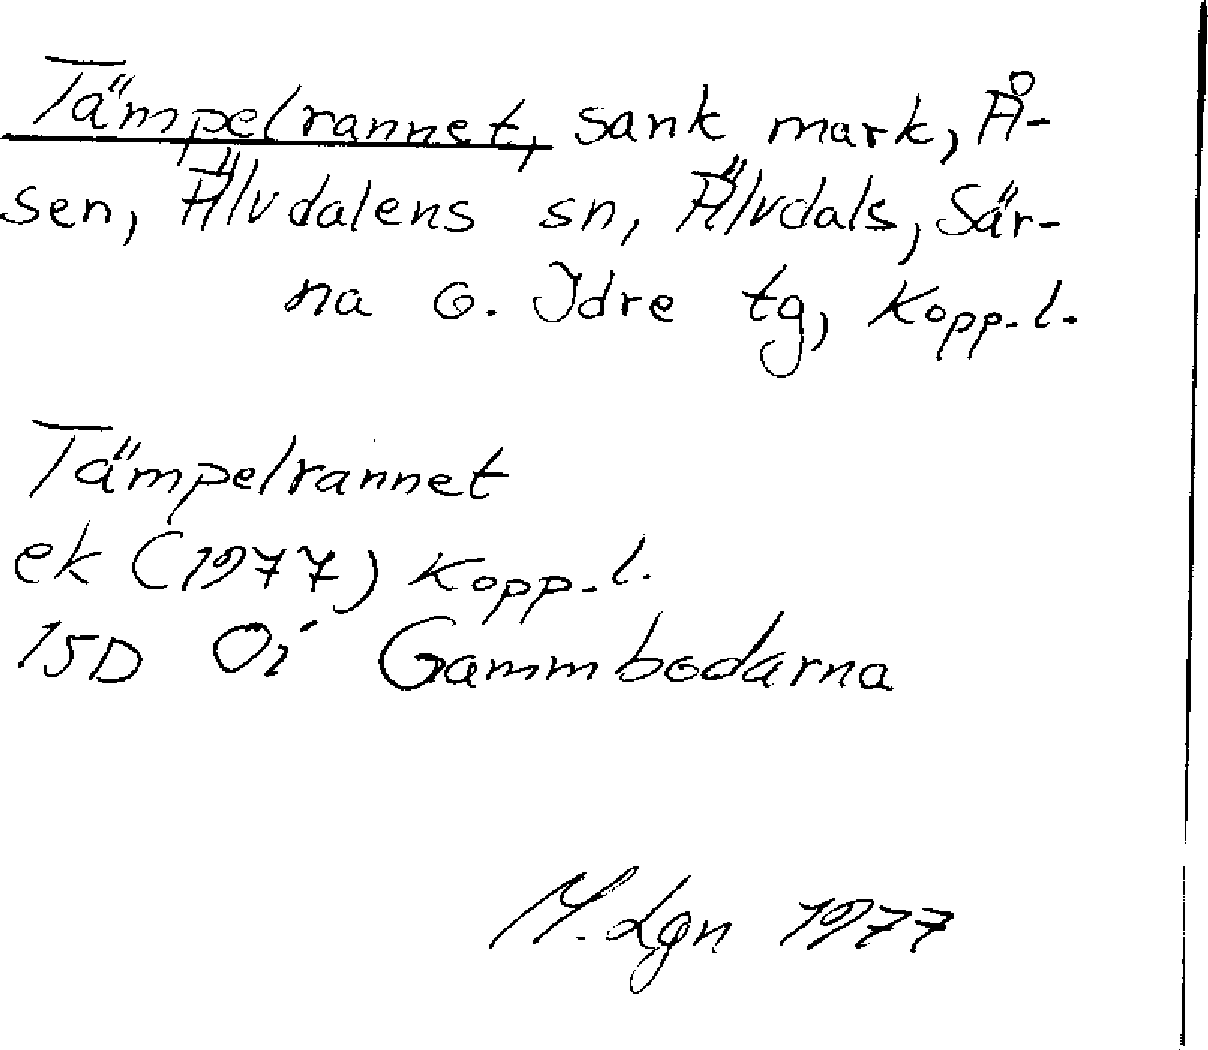 Tämpelrannet, sank mark, Å-
sen, Älvdalens sn, Älvdals, Sär-
na o. Idre tg, Kopp. l.
Tämpelrannet
ek (1977) Kopp. l.
15D 0i Gammbodarna
M. Lgn 1977